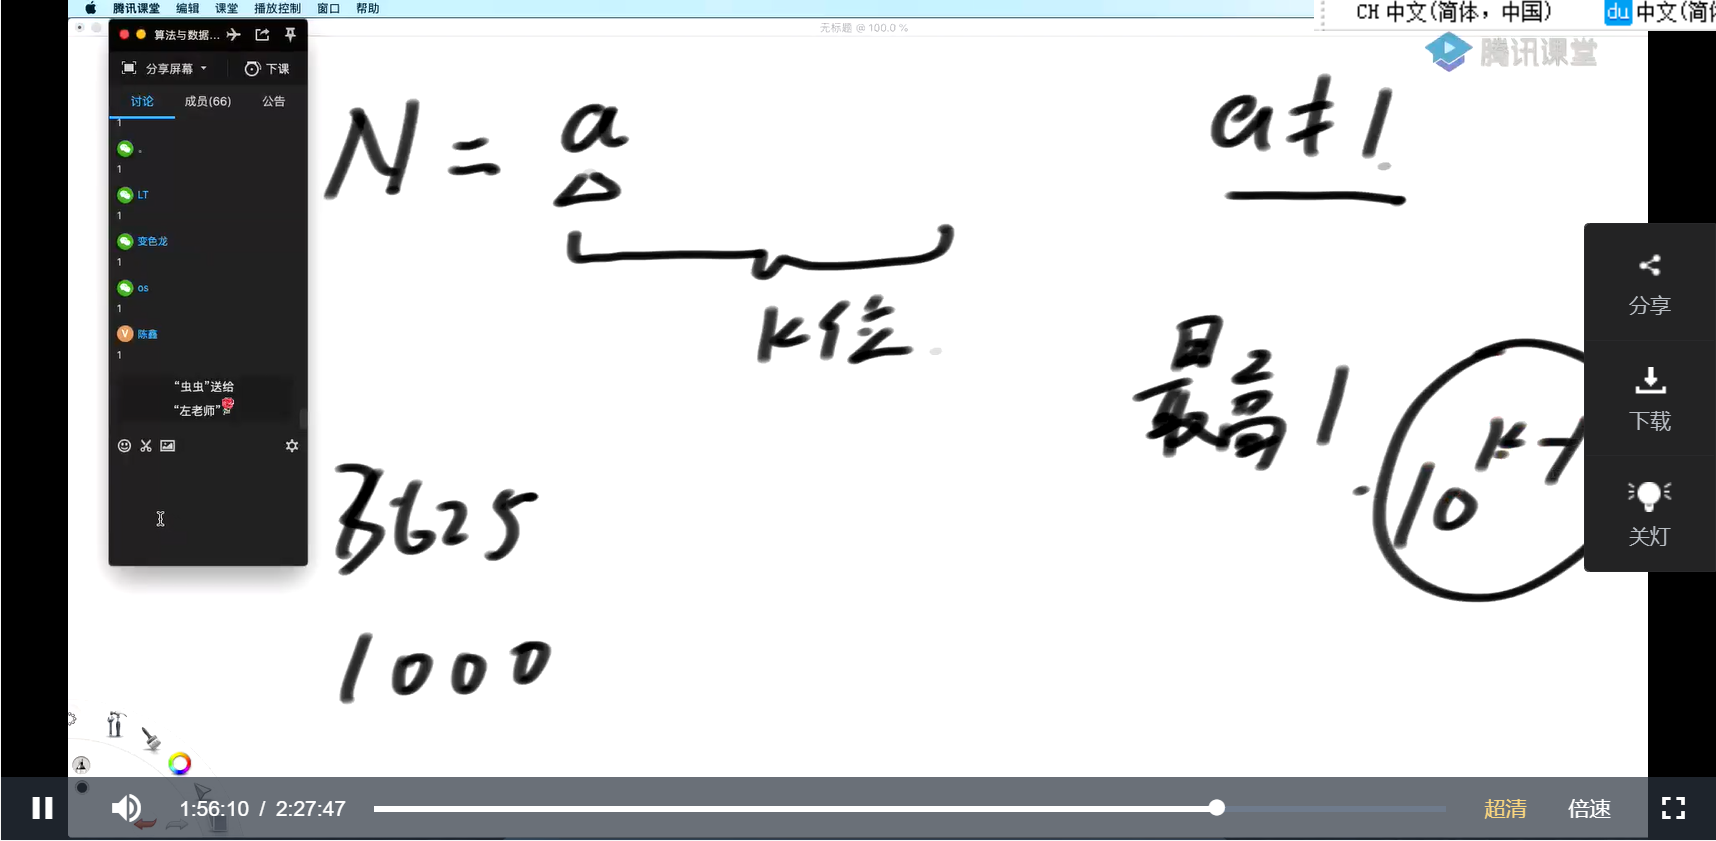 腾讯课堂 编辑 课堂 播放控制 窗口 帮助
CH 中文(简体，中国)
du 中文(简体
无标题 @ 100.0 %
腾讯课堂
算法与数据...
分享屏幕
下课
讨论 成员(66) 公告
1
。
1
LT
1
变色龙
1
os
1
V 陈鑫
1
“虫虫”送给
“左老师”
N = a
a ≠ 1
K位
最高 1
10^{K-1}
3625
1000
分享
下载
关灯
1:56:10 / 2:27:47
超清 倍速